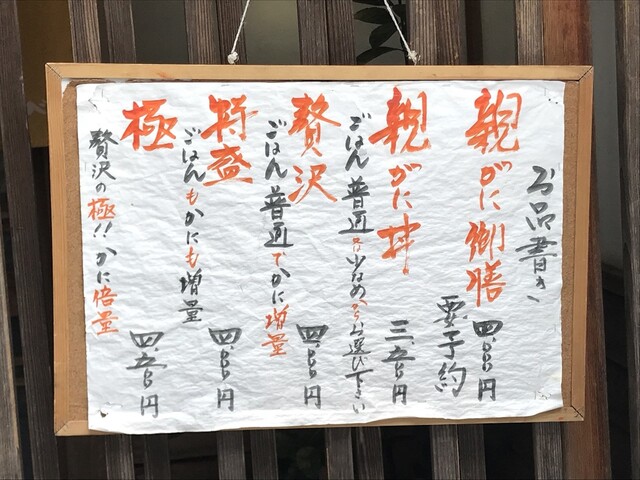 お品書き
親がに御膳 四、〇〇〇円
要予約
親がに丼 三、五〇〇円
ごはん普通か少なめからお選び下さい
贅沢 四、〇〇〇円
ごはん普通でかに増量
特盛 四、〇〇〇円
ごはんもかにも増量
極 四、五〇〇円
贅沢の極!! かに倍量